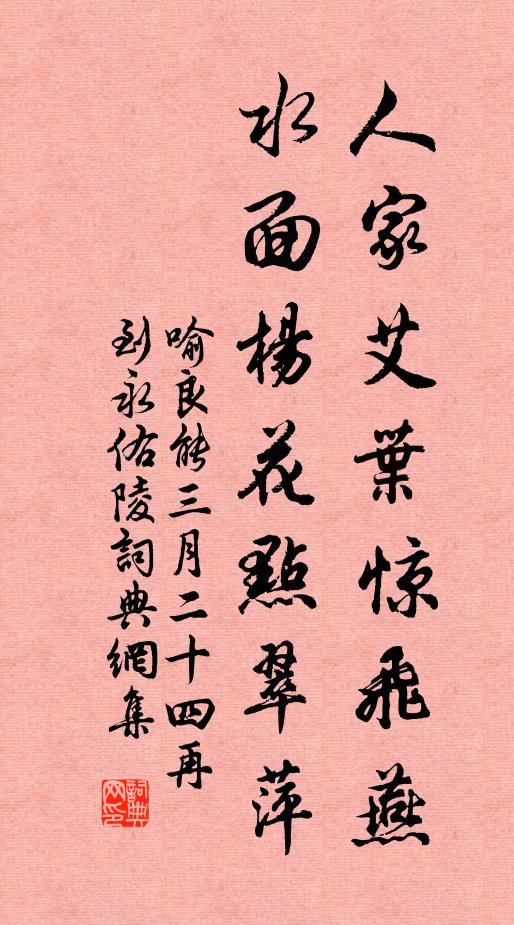 人家艾葉惊飛燕
水面楊花點翠萍
喻良能三月二十四再
到永佑陵詞典網集
詞典網印